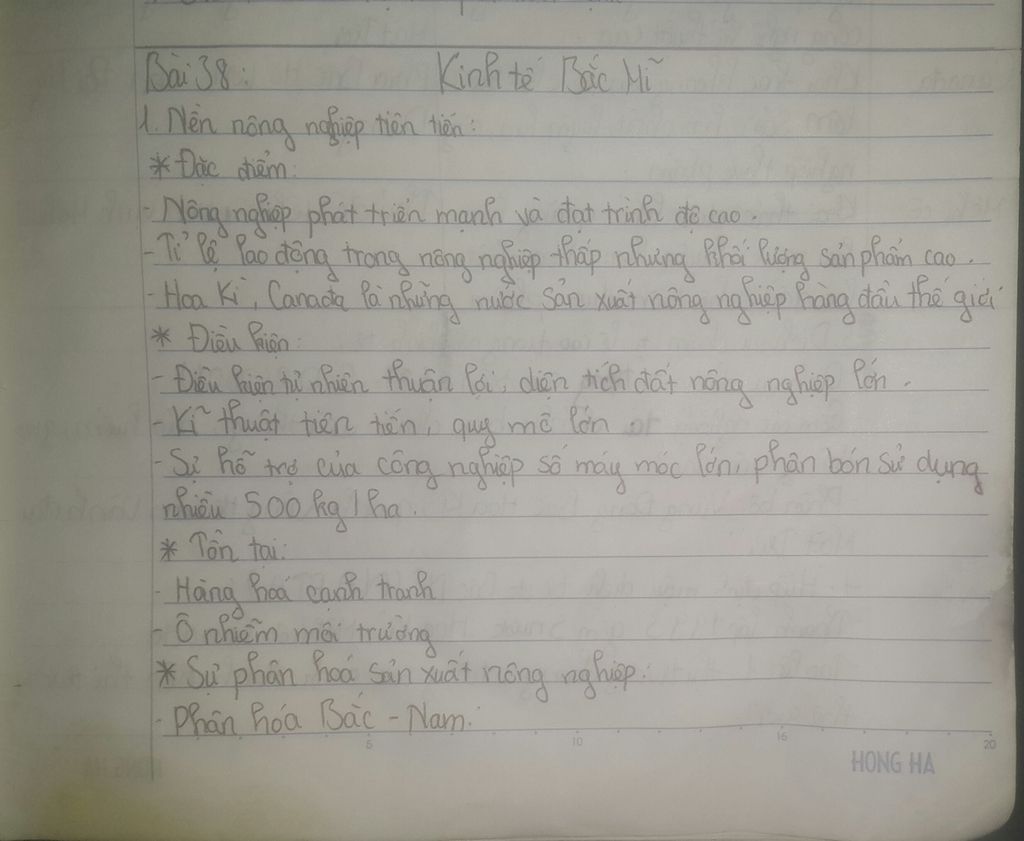 Bài 38: Kinh tế Bắc Mĩ
1. Nền nông nghiệp tiên tiến:
* Đặc điểm:
- Nông nghiệp phát triển mạnh và đạt trình độ cao.
- Tỉ lệ lao động trong nông nghiệp thấp nhưng khối lượng sản phẩm cao.
- Hoa Kì, Canada là những nước sản xuất nông nghiệp hàng đầu thế giới
* Điều kiện:
- Điều kiện tự nhiên thuận lợi, diện tích đất nông nghiệp lớn.
- Kĩ thuật tiên tiến, quy mô lớn
- Sự hỗ trợ của công nghiệp số máy móc lớn, phân bón sử dụng
nhiều 500 kg/ha.
* Tồn tại:
- Hàng hoá cạnh tranh
- Ô nhiễm môi trường
* Sự phân hoá sản xuất nông nghiệp:
- Phân hóa Bắc - Nam.
5 10 15 20
HONG HA